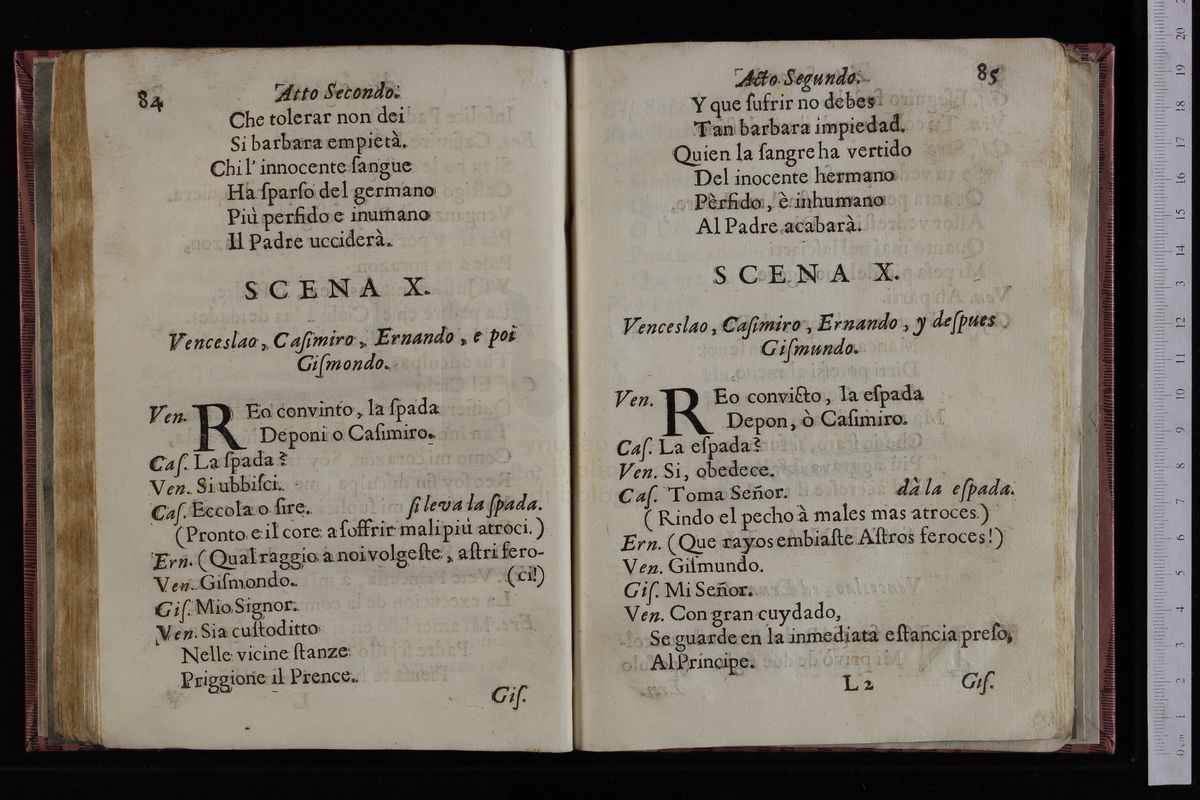 84
Atto Secondo.
Che tolerar non dei
Si barbara empietà.
Chi l' innocente ſangue
Ha ſparſo del germano
Più perfido e inumano
Il Padre ucciderà.
SCENA X.
Venceslao, Caſimiro, Ernando, e poi
Giſmondo.
Ven. REo convinto, la ſpada
Deponi o Caſimiro.
Caſ. La ſpada?
Ven. Si ubbiſci.
Caſ. Eccola o ſire. ſi leva la ſpada.
(Pronto e il core a ſoffrir mali più atroci.)
Ern. (Qual raggio a noi volgeſte, aſtri fero-
Ven. Giſmondo. (ci!)
Giſ. Mio Signor.
Ven. Sia cuſtoditto
Nelle vicine ſtanze
Priggione il Prence.
Giſ.
Acto Segundo.
85
Y que ſufrir no debes
Tan barbara impiedad.
Quien la ſangre ha vertido
Del inocente hermano
Pèrfido, è inhumano
Al Padre acabarà.
SCENA X.
Venceslao, Caſimiro, Ernando, y deſpues
Giſmundo.
Ven. REo convicto, la eſpada
Depon, ò Caſimiro.
Caſ. La eſpada?
Ven. Si, obedece.
Caſ. Toma Señor. dà la eſpada.
(Rindo el pecho à males mas atroces.)
Ern. (Que rayos embiaſte Aſtros feroces!)
Ven. Giſmundo.
Giſ. Mi Señor.
Ven. Con gran cuydado,
Se guarde en la inmediata eſtancia preſo,
Al Principe.
L 2 Giſ.